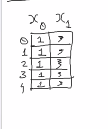 x₀ x₁
0 1 3
1 1 3
2 1 3
3 1 3
4 1 3